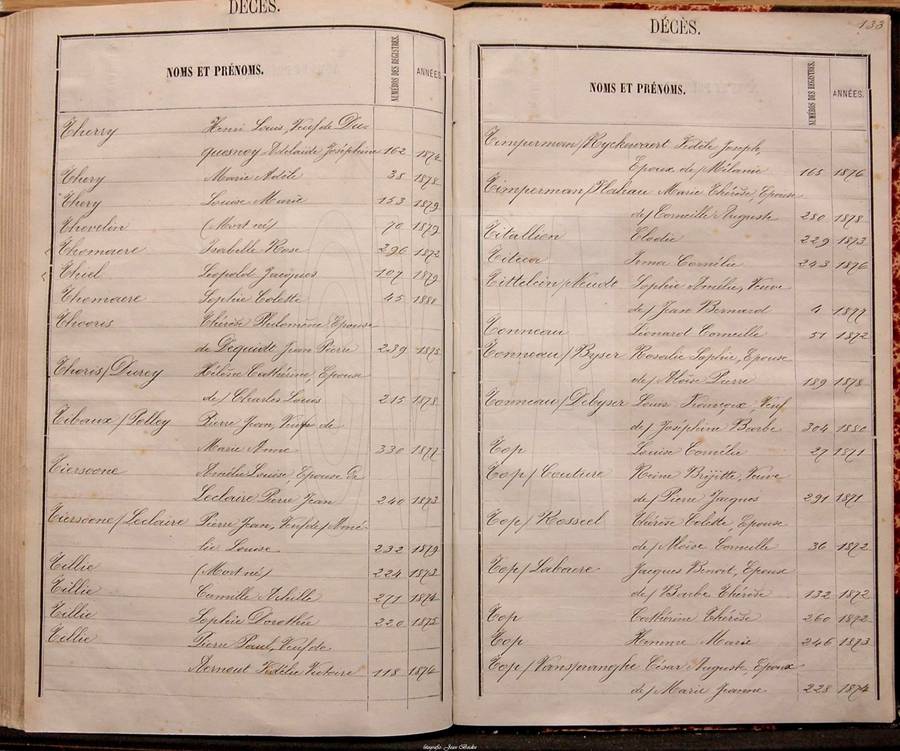 DÉCÈS.
NOMS ET PRÉNOMS. NUMÉROS DES REGISTRES. ANNÉES.
Therry Henri Louis, Veuf de Du-
quesnoy Adelaïde Joséphine 162 1874
Thery Marie Adèle 38 1878
Thery Louise Marie 153 1879
Thevelin (Mort né) 70 1879
Thomaere Isabelle Rose 296 1872
Thiel Léopold Jacques 107 1879
Thomaere Sophie Colette 45 1880
Thooris Thérèse Philomène Epouse
de Dequidt Jean Pierre 239 1878
Thoris/Durey Hélène Catherine, Epouse
de/ Charles Louis 215 1878
Tibaux/Polley Pierre Jean, Veuf de
Marie Anne 330 1877
Tiersoone Amélie Louise, Epouse De
Leclaire Pierre Jean 240 1873
Tiersoone/Leclaire Pierre Jean, Veuf de/ Amé-
lie Louise 232 1879
Tillie (Mort né) 224 1873
Tillie Camille Achille 271 1874
Tillie Sophie Dorothée 220 1875
Tillie Pierre Paul, Veuf de
Arnout Fidélie Victoire 118 1876
DÉCÈS. 133
NOMS ET PRÉNOMS. NUMÉROS DES REGISTRES. ANNÉES.
Timperman/Ryckewaert Fidèle Joseph,
Epoux de/ Mélanie 165 1876
Timperman/Plahau Marie Thérèse, Epouse
de/ Corneille Auguste 280 1878
Titallion Elodie 229 1873
Titeca Irma Cornélie 243 1876
Tittelein/Neude Sophie Amélie, Veuve
de/ Jean Bernard 4 1877
Tonneau Léonard Corneille 51 1872
Tonneau/Byser Rosalie Sophie, Epouse
de/ Aloïse Pierre 189 1878
Tonneau/Debyser Louis François, Veuf
de/ Joséphine Barbe 304 1880
Top Louise Cornélie 27 1871
Top/Couture Reine Brijitte, Veuve
de/ Pierre Jacques 291 1871
Top/Rosseel Thérèse Colette, Epouse
de/ Aloïse Corneille 36 1872
Top/Labaere Jacques Benoit, Epoux
de/ Barbe Thérèse 132 1872
Top Catherine Thérèse 260 1872
Top Marie 246 1873
Top/ César Auguste, Epoux
de/ Marie Jeanne 228 1874